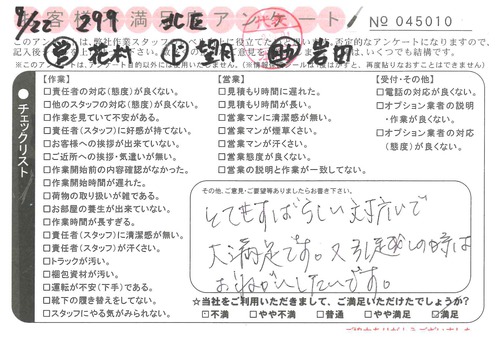 9/22 299 北区
お客様満足アンケート No 045010
このアンケートは、弊社作業スタッフ
営 花村 上 望月 助 岩田
チェックリスト
【作業】
□責任者の対応(態度)が良くない。
□他のスタッフの対応(態度)が良くない。
□作業を見ていて不安がある。
□責任者(スタッフ)に好感が持てない。
□お客様への挨拶が出来ていない。
□ご近所への挨拶・気遣いが無い。
□作業開始前の内容確認がなかった。
□作業開始時間が遅れた。
□荷物の取り扱いが雑である。
□お部屋の養生が出来ていない。
□作業時間が長すぎる。
□責任者(スタッフ)に清潔感が無い。
□責任者(スタッフ)が汗くさい。
□トラックが汚い。
□梱包資材が汚い。
□運転が不安(下手)である。
□靴下の履き替えをしてない。
□スタッフにやる気がみられない。
【営業】
□見積もり時間に遅れた。
□見積もり時間が長い。
□営業マンに清潔感が無い。
□営業マンが煙草くさい。
□営業マンが汗くさい。
□営業態度が良くない。
□営業の説明と作業が一致してない。
【受付・その他】
□電話の対応が良くない。
□オプション業者の説明
・作業が良くない。
□オプション業者の対応
(態度)が良くない。
その他、ご意見・ご要望等ありましたらお書き下さい。
とてもすばらしい対応で
大満足です。又引越しの時は
おねがいしたいです。
☆当社をご利用いただきまして、ご満足いただけたでしょうか?
□不満 □やや不満 □普通 □やや満足 ☑満足
ご協力ありがとうございました